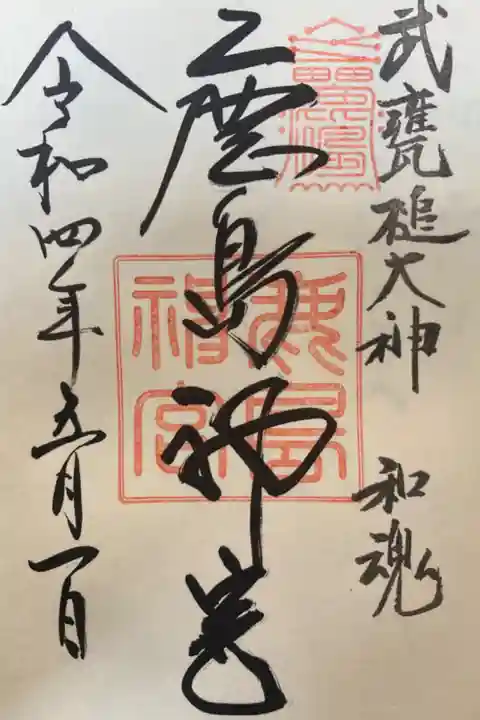 武甕槌大神 和魂
鹿島神宮
令和四年五月一日
鹿島
神宮